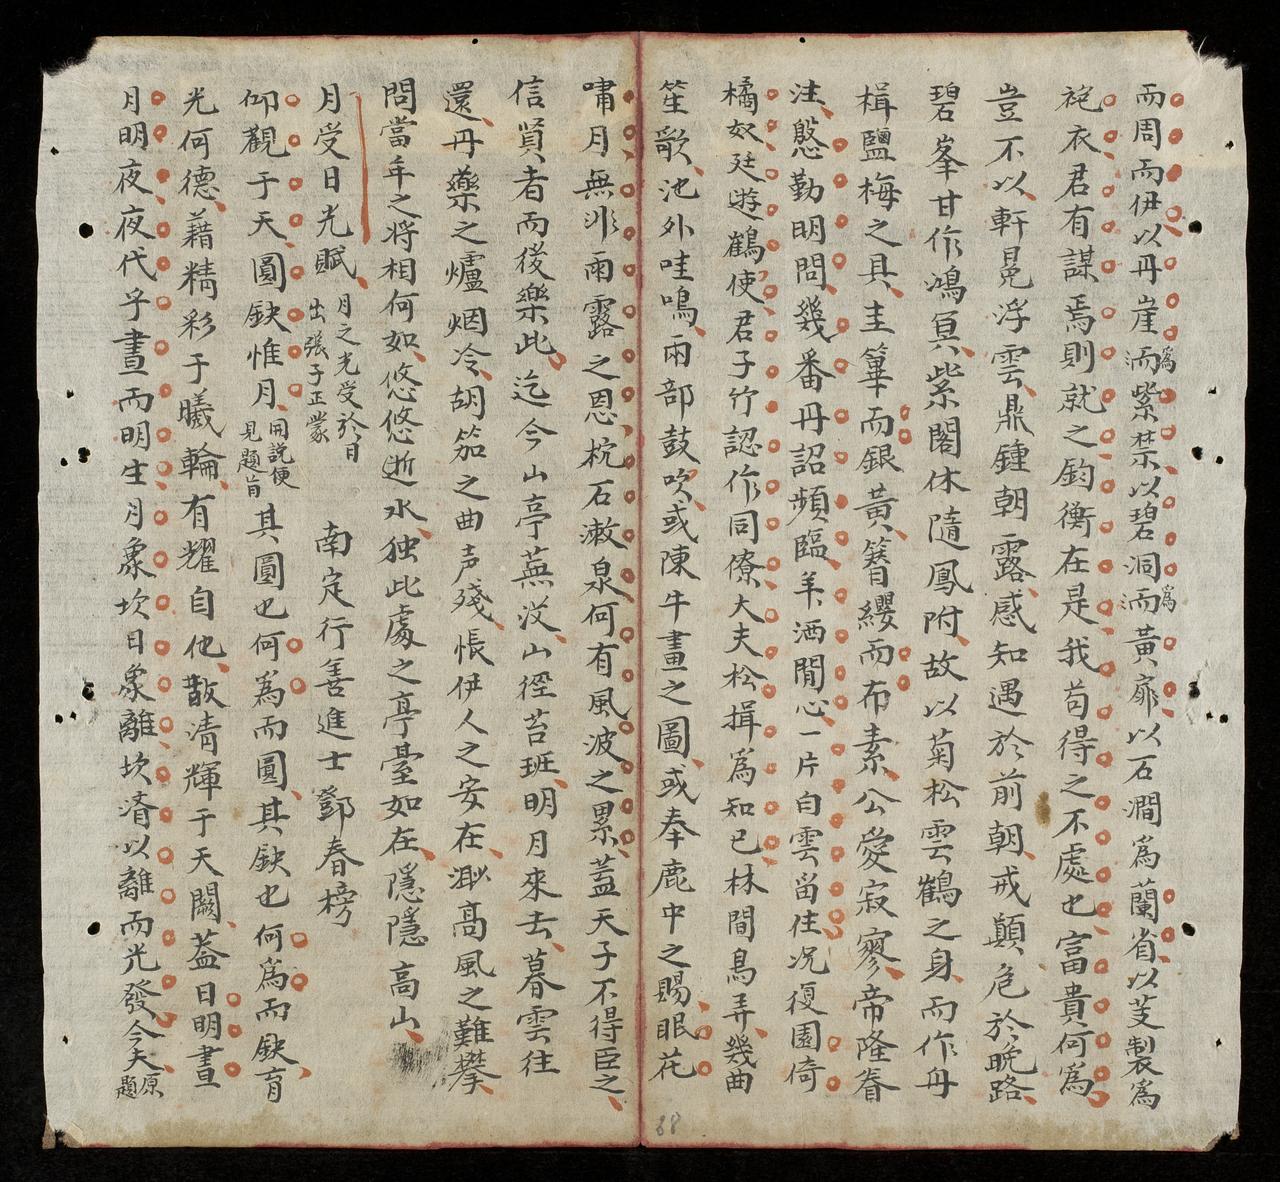 而周而伊以丹崖而為紫禁以碧洞而為黃扉以石澗為蘭省以芰製為
袍衣君有謀焉則就之鈞衡在是我苟得之不處也富貴何為
豈不以軒冕浮雲鼎鍾朝露感知遇於前朝戒顛危於晚路
碧峯甘作鴻冥紫閣休隨鳳附故以菊松雲鶴之身而作舟
楫鹽梅之具圭篳而銀黃簪纓而布素公愛寂寥帝隆眷
注慇勤明問幾番丹詔頻臨羊酒閒心一片白雲留住況復園倚
橘奴廷遊鶴使君子竹認作同僚大夫松揖為知已林間鳥弄幾曲
笙歌池外哇鳴兩部鼓吹或陳牛畫之圖或奉鹿中之賜眠花
嘯月無非雨露之恩枕石漱泉何有風波之累蓋天子不得臣之
信賢者而後樂此迄今山亭蕪沒山徑苔班明月來去暮雲往
還丹藥之爐烟冷胡笳之曲声殘悵伊人之安在渺高風之難攀
問當年之將相何如悠悠逝水独此處之亭臺如在隱隱高山
月受日光賦 月之光受於日出張子正蒙 南定行善進士鄧春榜
仰觀于天圓缺惟月用說便見題旨其圓也何為而圓其缺也何為而缺育
光何德藉精彩于曦輪有耀自他散清輝于天闕蓋日明晝
月明夜夜代乎晝而明生月象坎日象離坎濟以離而光發今夫原題
88